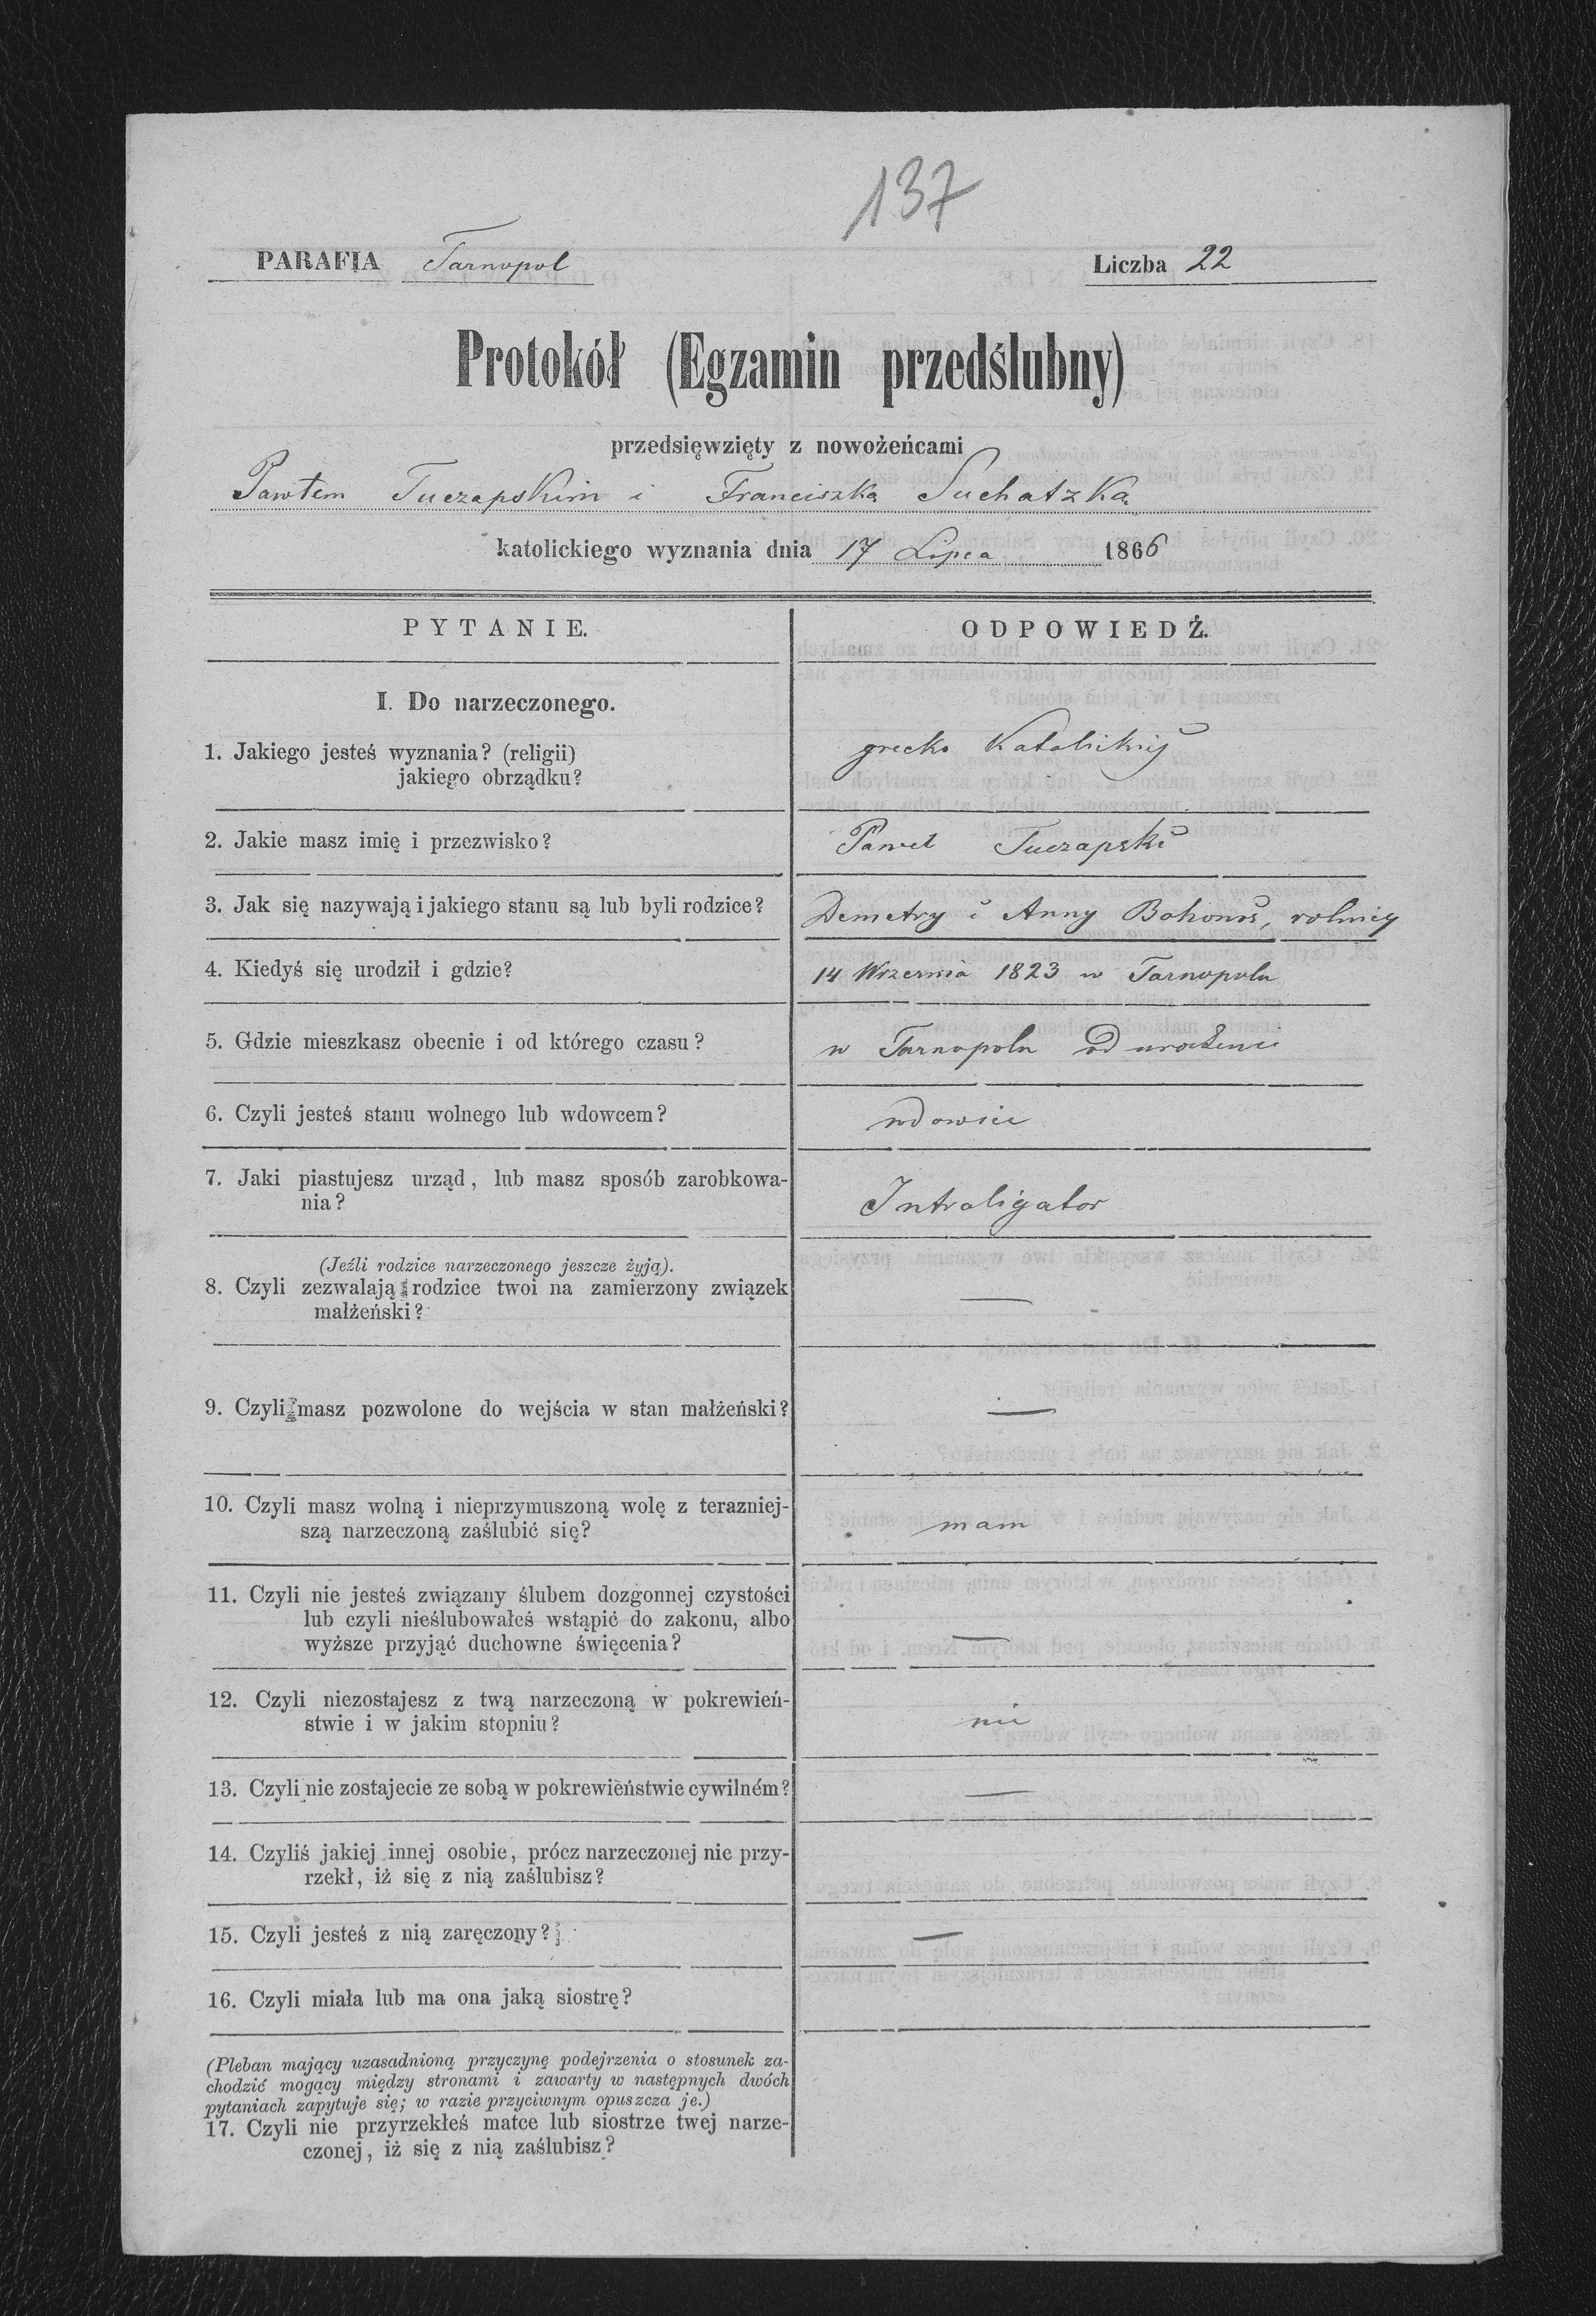 137
PARAFIA Tarnopol
Liczba 22
Protokół (Egzamin przedślubny)
przedsięwzięty z nowożeńcami
Pawłem Tuczapskim i Franciszką Suchatzką
katolickiego wyznania dnia 17 Lipca 1866
PYTANIE.
ODPOWIEDŹ.
I. Do narzeczonego.
1. Jakiego jesteś wyznania? (religii)
jakiego obrządku?
grecko Katolickiej
2. Jakie masz imię i przezwisko?
Paweł Tuczapski
3. Jak się nazywają i jakiego stanu są lub byli rodzice?
Demetry i Anny Bohonos, rolnicy
4. Kiedyś się urodził i gdzie?
14 Wrzesnia 1823 w Tarnopolu
5. Gdzie mieszkasz obecnie i od którego czasu?
w Tarnopolu od urodzenia
6. Czyli jesteś stanu wolnego lub wdowcem?
wdowiec
7. Jaki piastujesz urząd, lub masz sposób zarobkowa-
nia?
Introligator
(Jeźli rodzice narzeczonego jeszcze żyją).
8. Czyli zezwalają rodzice twoi na zamierzony związek
małżeński?
—
9. Czyli masz pozwolone do wejścia w stan małżeński?
—
10. Czyli masz wolną i nieprzymuszoną wolę z terazniej-
szą narzeczoną zaślubić się?
mam
11. Czyli nie jesteś związany ślubem dozgonnej czystości
lub czyli nieślubowałeś wstąpić do zakonu, albo
wyższe przyjąć duchowne święcenia?
—
12. Czyli niezostajesz z twą narzeczoną w pokrewień-
stwie i w jakim stopniu?
nie
13. Czyli nie zostajecie ze sobą w pokrewieństwie cywilném?
—
14. Czyliś jakiej innej osobie, prócz narzeczonej nie przy-
rzekł, iż się z nią zaślubisz?
15. Czyli jesteś z nią zaręczony?
—
16. Czyli miała lub ma ona jaką siostrę?
(Pleban mający uzasadnioną przyczynę podejrzenia o stosunek za-
chodzić mogący między stronami i zawarty w następnych dwóch
pytaniach zapytuje się; w razie przyciwnym opuszcza je.)
17. Czyli nie przyrzekłeś matce lub siostrze twej narze-
czonej, iż się z nią zaślubisz?